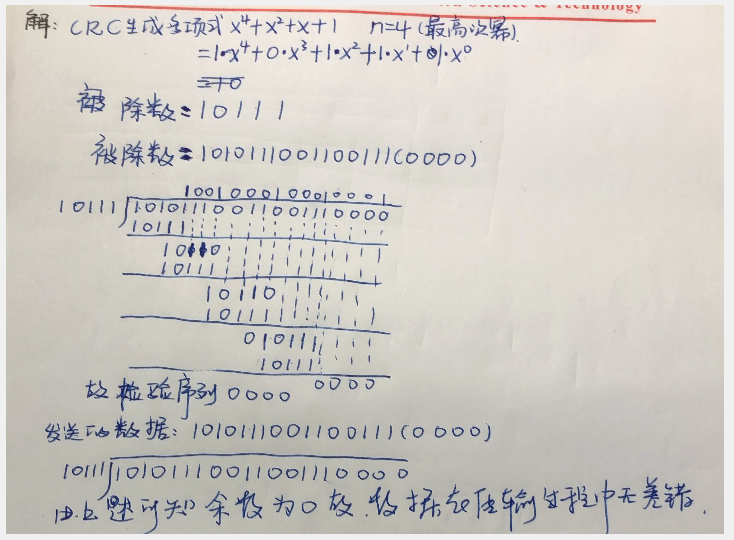 & Technology
解: CRC生成多项式 x⁴+x²+x+1 n=4 (最高次幂).
=1·x⁴+0·x³+1·x²+1·x¹+1·x⁰
除数=10111
被除数=1010111001100111(0000)
1001000100010001
10111 10101110011001110000
10111
10110
10111
10110
10111
010111
10111
0000
故检验序列0000
发送的数据: 1010111001100111(0000)
10111 10101110011001110000
由上题可知 余数为0 故 数据在传输过程中无差错.